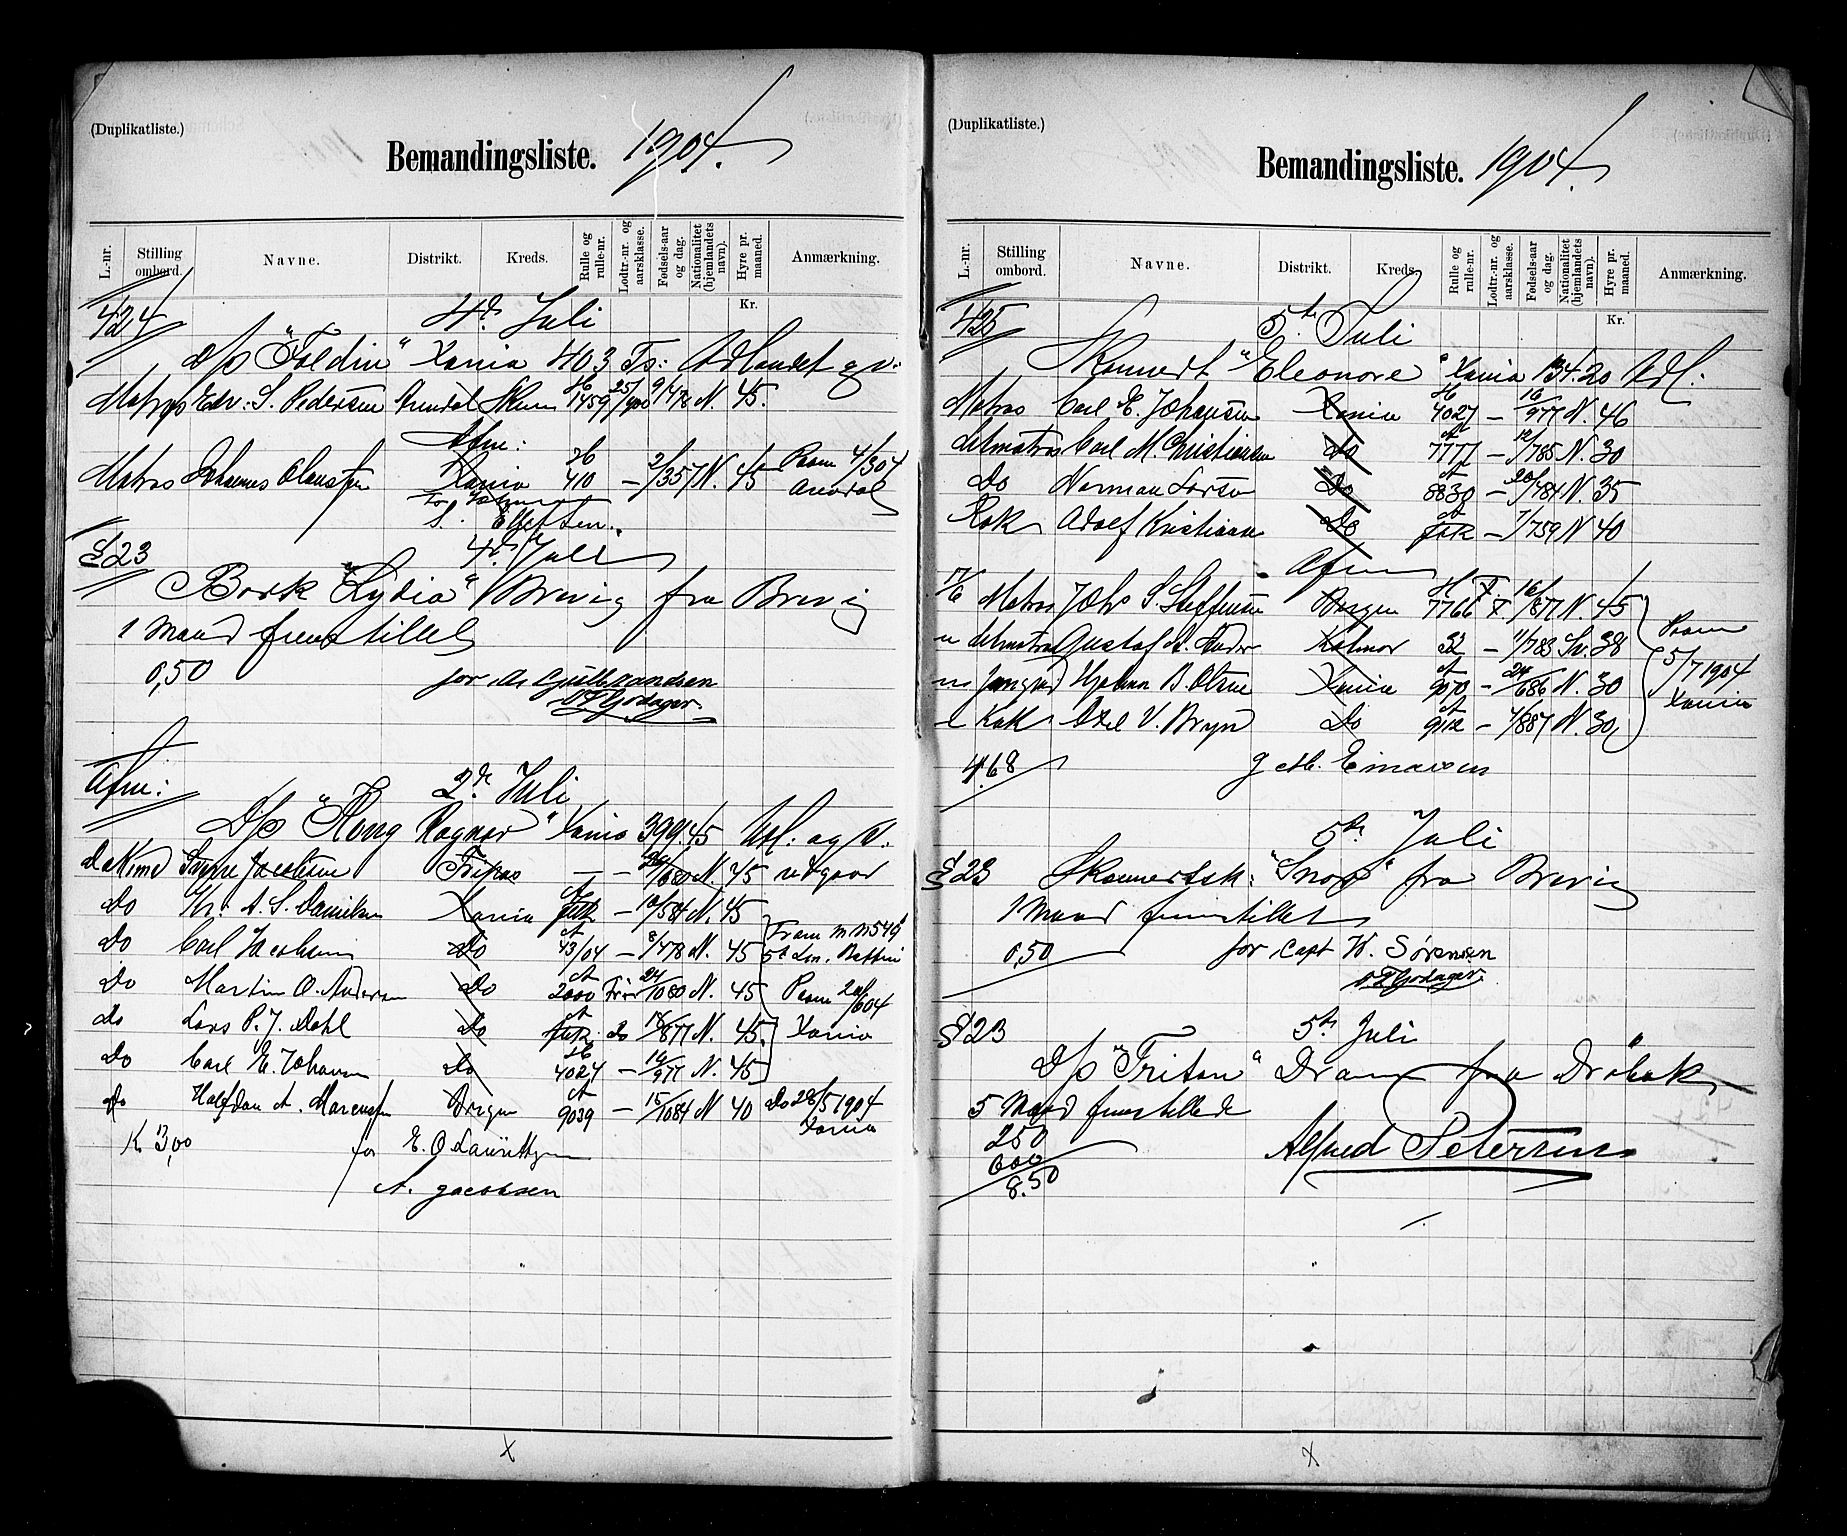 (Duplikatliste.)
Bemandingsliste. 1904.
L.-nr. Stilling ombord. Navne. Distrikt. Kreds. Rulle og rulle-nr. Lodtr.-nr. og aarsklasse. Fødsels-aar og dag. Nationalitet (hjemlandets navn). Hyre pr. maaned. Anmærkning.
Kr.
424 4de Juli
D/s "Foldin" Xania 403 Ts: Udlandet og
Matros Edv. S. Pedersen Arendal 1459 25/900 9/478 N. 45.
Afm:
Matros Johannes Xania 410 – 2/357 N. 45 Paam 4/304 Arendal
S. Ellefsen.
§ 23 4de Juli
Bark "Lydia" Brevig fra Brevig
1 Mand fremstillet
0,50 for A. Gulbrandsen
Afm: 2de Juli
D/s "Kong Ragnar" Xania 399.45 Udl: og
Jacobsen – – N. 45 udgaar
Do Chr. A. S. Danielsen Xania – 12/584 N. 45
Do Carl Jacobsen Do 43/04 – 8/478 N. 45
Do Martin O. Andersen Do 2000 24/1080 N. 45 Paam 20/604
Do Lars P. J. Dahl Do Do 18/877 N. 45. Xania
Do Carl E. Johansen Do 4027 – 16/977 N. 45
Do Halfdan A. Bergen 9039 – 15/1084 N 40 Do 28/51904 Xania
Kr 3,00 for E. O.
A. Jacobsen
(Duplikatliste.)
Bemandingsliste. 1904.
L.-nr. Stilling ombord. Navne. Distrikt. Kreds. Rulle og rulle-nr. Lodtr.-nr. og aarsklasse. Fødsels-aar og dag. Nationalitet (hjemlandets navn). Hyre pr. maaned. Anmærkning.
Kr.
425 5te Juli
Skonnert "Eleonore" Xania 134.20 Udl.
Matros Carl E. Johansen Xania 4027 – 16/977 N. 46
Letmatros Carl M. Christiansen Do 7777 – 12/785 N. 30
Do Herman Larsen Do 8830 – 20/484 N. 35
Kok Adolf Kristiansen Do – 7/759 N 40
Afm
Matros Johs S. Steffensen Bergen 7766 16/877 N. 45
" Letmatros Gustaf A. Kalmar 32 – 11/783 Sv. 38 Paam
" Jungmd Hjalmar B. Olsen Xania 9070 – 24/686 N. 30 5/71904
" Kok Axel V. Bryn Do 9112 – 4/887 N. 30 Xania
4,68 Einarsen
5te Juli
§ 23 Skonnertsk: fra Brevig
1 Mand fremstillet
0,50 for Capt W. Sørensen
§ 23 5te Juli
D/s "Triton" Dram fra Drøbak
5 Mand fremstillede
250
600
8.50 Alfred Petersen
X
X